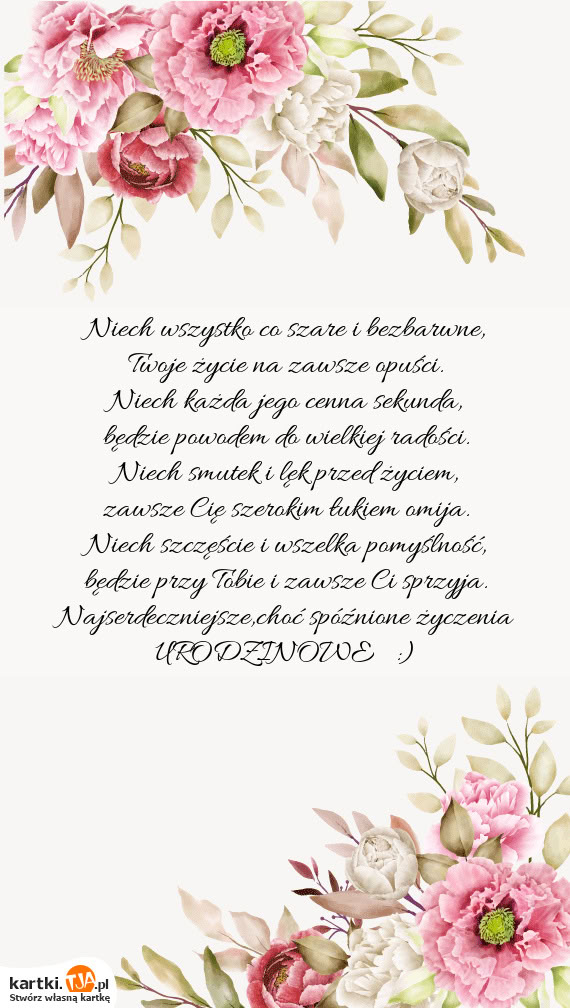 Niech wszystko co szare i bezbarwne,
Twoje życie na zawsze opuści.
Niech każda jego cenna sekunda,
będzie powodem do wielkiej radości.
Niech smutek i lęk przed życiem,
zawsze Cię szerokim łukiem omija.
Niech szczęście i wszelka pomyślność,
będzie przy Tobie i zawsze Ci sprzyja.
Najserdeczniejsze,choć spóźnione życzenia
URODZINOWE :)
kartki.TJA.pl
Stwórz własną kartkę